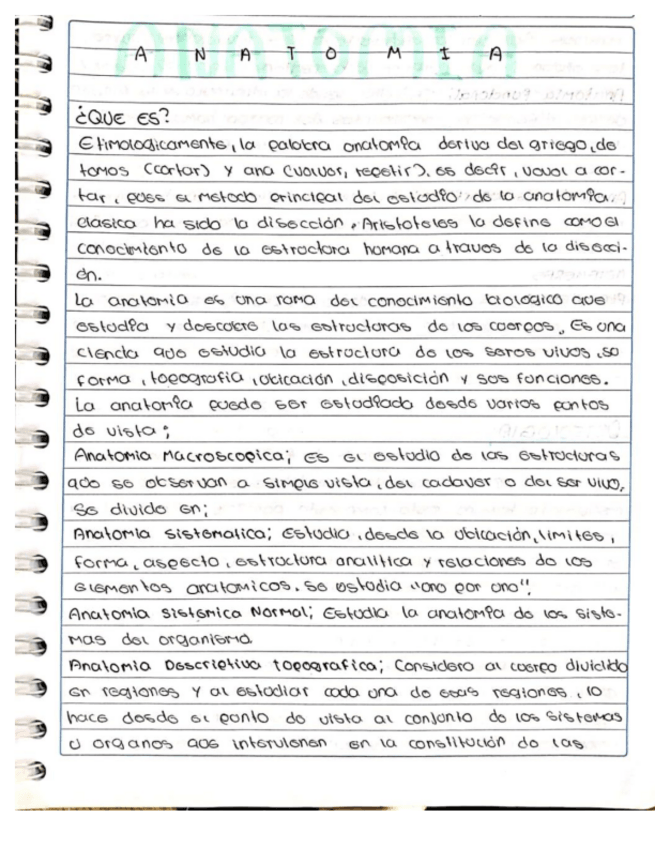 A N A T O M I A
¿QUE ES?
Etimologicamente, la palabra anatomía deriva del griego, de
tomos (cortar) y ana (volver, repetir). es decir, volver a cor-
tar, pues el metodo principal del estudio de la anatomía
clásica ha sido la disección, Aristoteles la define como el
conocimiento de la estructura humana a traves de la disecci-
ón.
La anatomia es una rama del conocimiento biologico que
estudia y descubre las estructuras de los cuerpos, Es una
ciencia que estudia la estructura de los seres vivos, su
forma, topografia, ubicación, disposición y sus funciones.
La anatomía puede ser estudiada desde varios puntos
de vista;
Anatomia Macroscopica; Es el estudio de las estructuras
que se observan a simple vista, del cadaver o del ser vivo,
Se divide en;
Anatomia sistematica; Estudia, desde la ubicación, limites,
forma, aspecto, estructura analitica y relaciones de los
elementos anatomicos. Se estudia "uno por uno".
Anatomia Sistemica Normal; Estudia la anatomía de los siste-
mas del organismo
Anatomia Descriptiva topografica; Considera al cuerpo dividido
en regiones y al estudiar cada una de esas regiones, lo
hace desde el punto de vista al conjunto de los sistemas
u organos que intervienen en la constitución de las